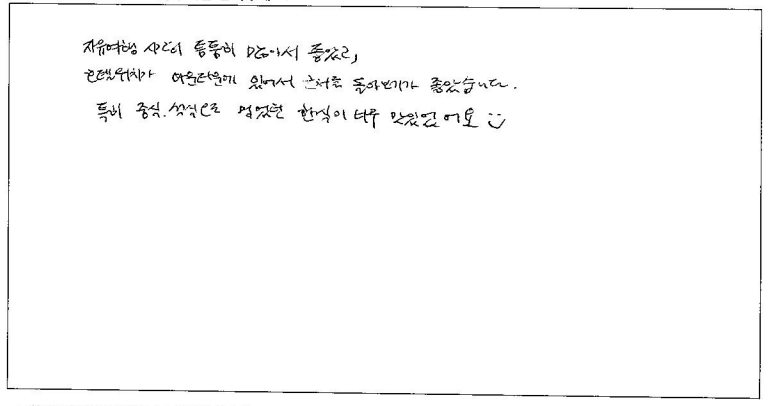 자유여행 시간이 통통히 많아서 좋았고,
호텔위치가 다운타운에 있어서 근처를 돌아보기가 좋았습니다.
특히 중식.석식으로 먹었던 한식이 너무 맛있었어요 :)